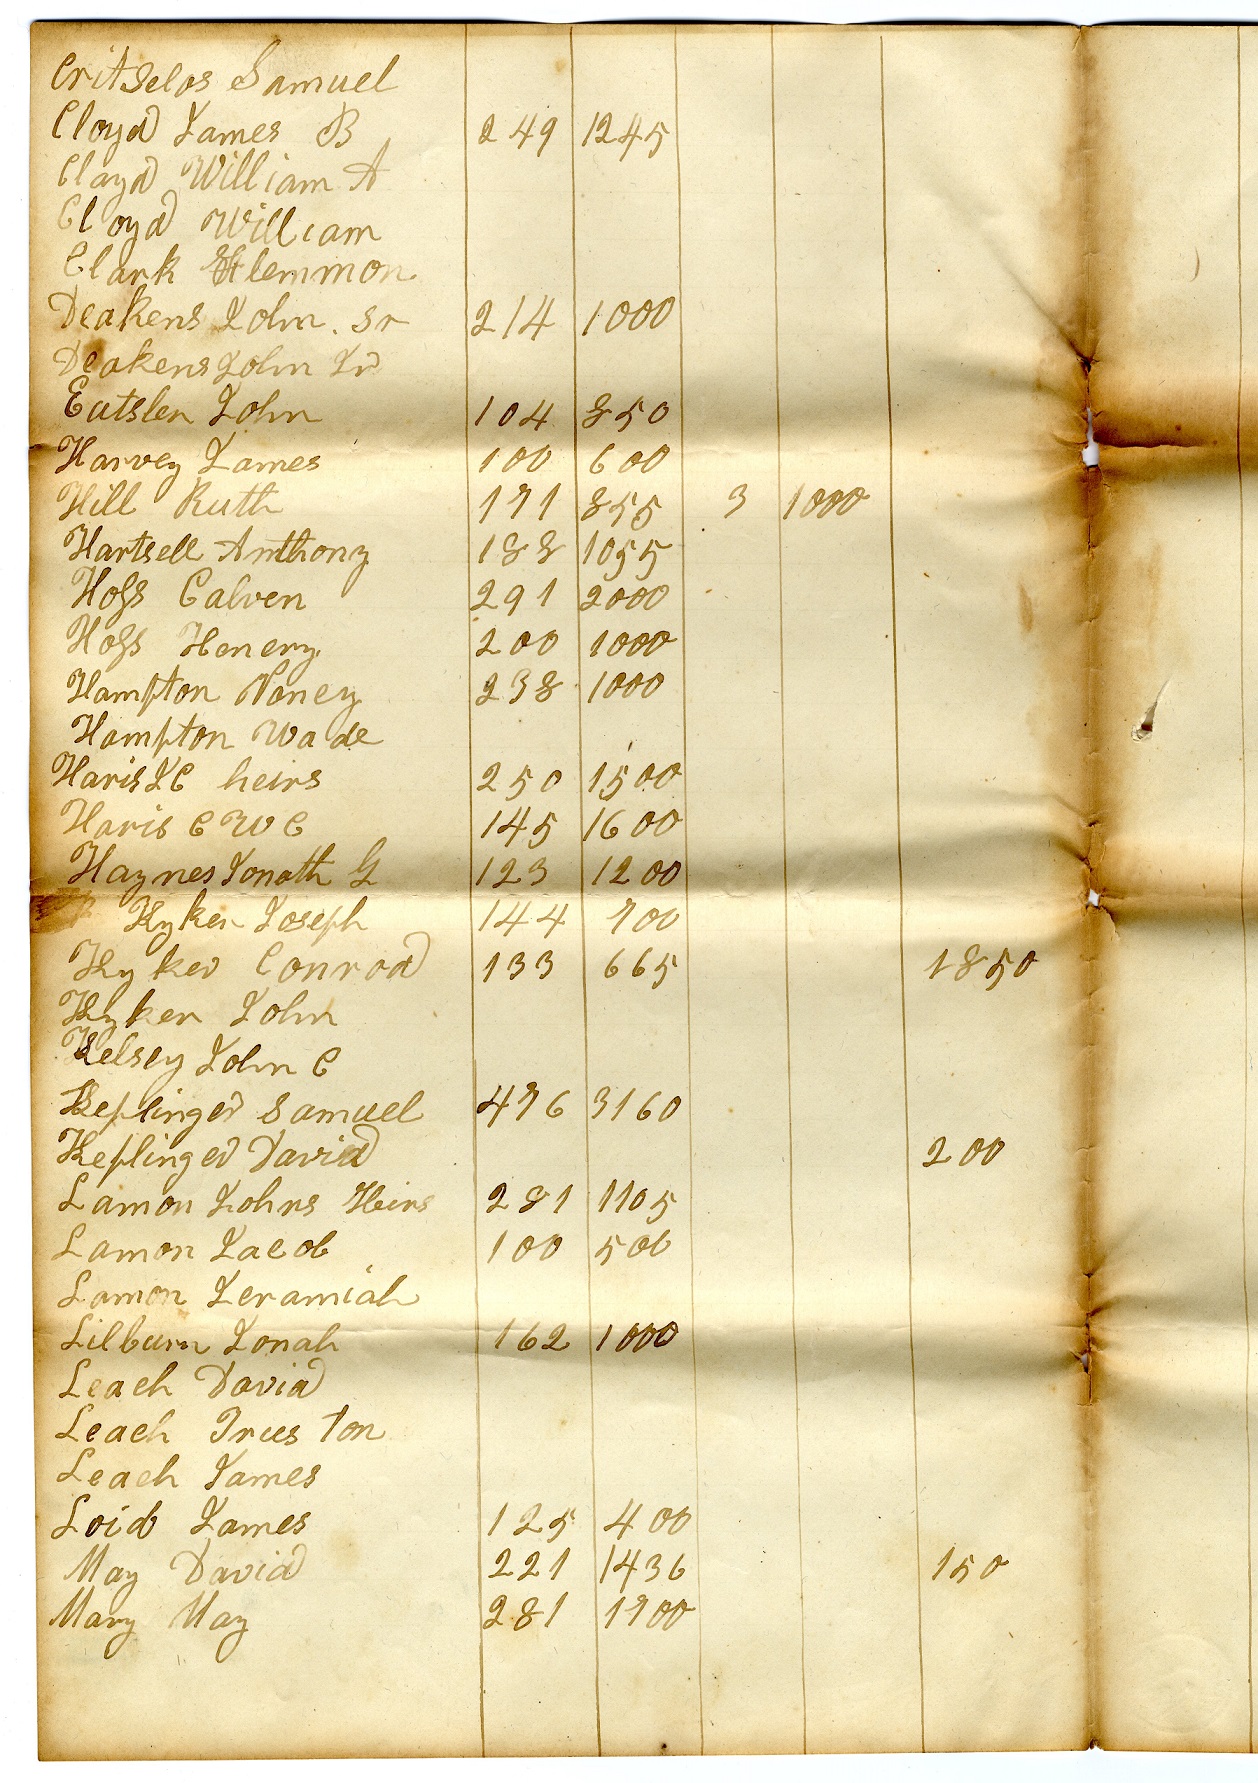 Critselos Samuel
Cloyd James B 249 1245
Cloyd William A
Cloyd William
Clark Hlemmon
Deakens John. Sr 214 1000
Deakens John Jr
Eutsler John 104 850
Harvey James 100 600
Hill Ruth 171 855 3 1000
Hartsell Anthony 188 1055
Hoss Calven 291 2000
Hoss Henery 200 1000
Hampton Noney 238 1000
Hampton Wade
Haris J C heirs 250 1500
Haris C W C 145 1600
Haynes Jonath G 123 1200
Kyker Joseph 144 700
Kyker Conrod 133 665 1850
Kyker John
Kelsey John C
Keplinger Samuel 476 3160
Keplinger David 200
Lamon Johns Heirs 281 1105
Lamon Jacob 100 500
Lamon Jeramiah
Lilburn Jonah 162 1000
Leach David
Leach Trueston
Leach James
Loid James 125 400
May David 221 1436 150
Mary May 281 1700